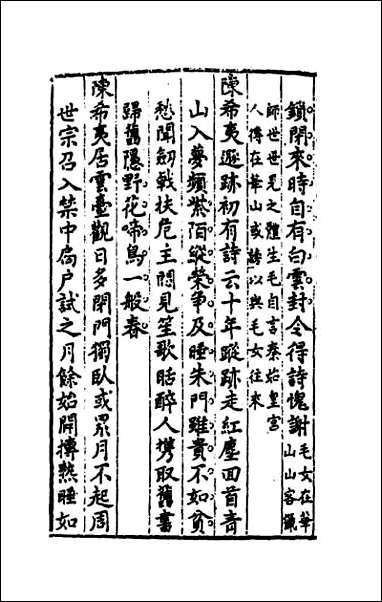 鎖閉來時自有白雲封令得詩愧謝毛女在華
山山客獵
師世世見之體生毛自言秦始皇宮
人傳在華山或詩以與毛女往來
陳希夷遯跡初有詩云十年蹤跡走紅塵面首青
山入夢頻紫陌縱榮争及睡朱門雖貴不如貧
愁聞劍戟扶危主悶見笙歌聒醉人携取舊書
歸舊隱野花啼鳥一般春
陳希夷居雲臺觀日多閉門獨臥或累月不起周
世宗召入禁中扃户試之月餘始開摶熟睡如